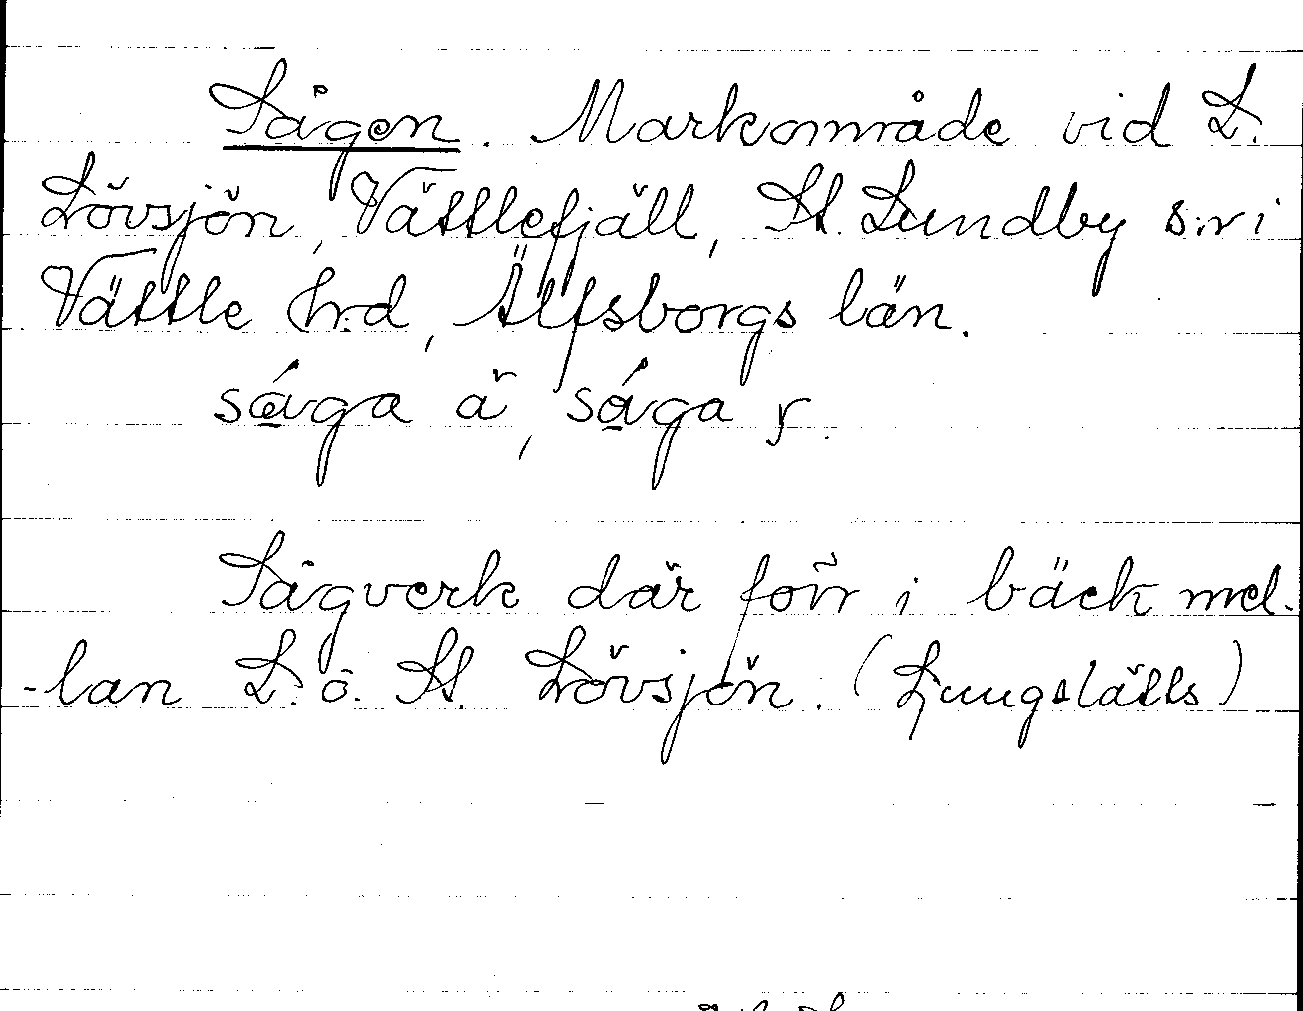 Sågen. Markområde vid L.
Lövsjön, Vättlefjäll, St. Lundby s:n i
Vättle hrd, Älfsborgs län.
såga ä, såga r.
Sågverk där förr i bäck mel-
-lan L. o. St Lövsjön. (Ljungslätts)